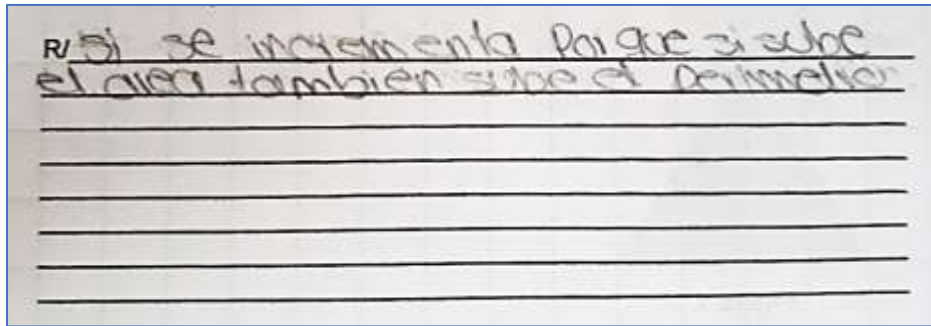 R/ Si se incrementa Porque si sube
el area tambien sube el Perimetro